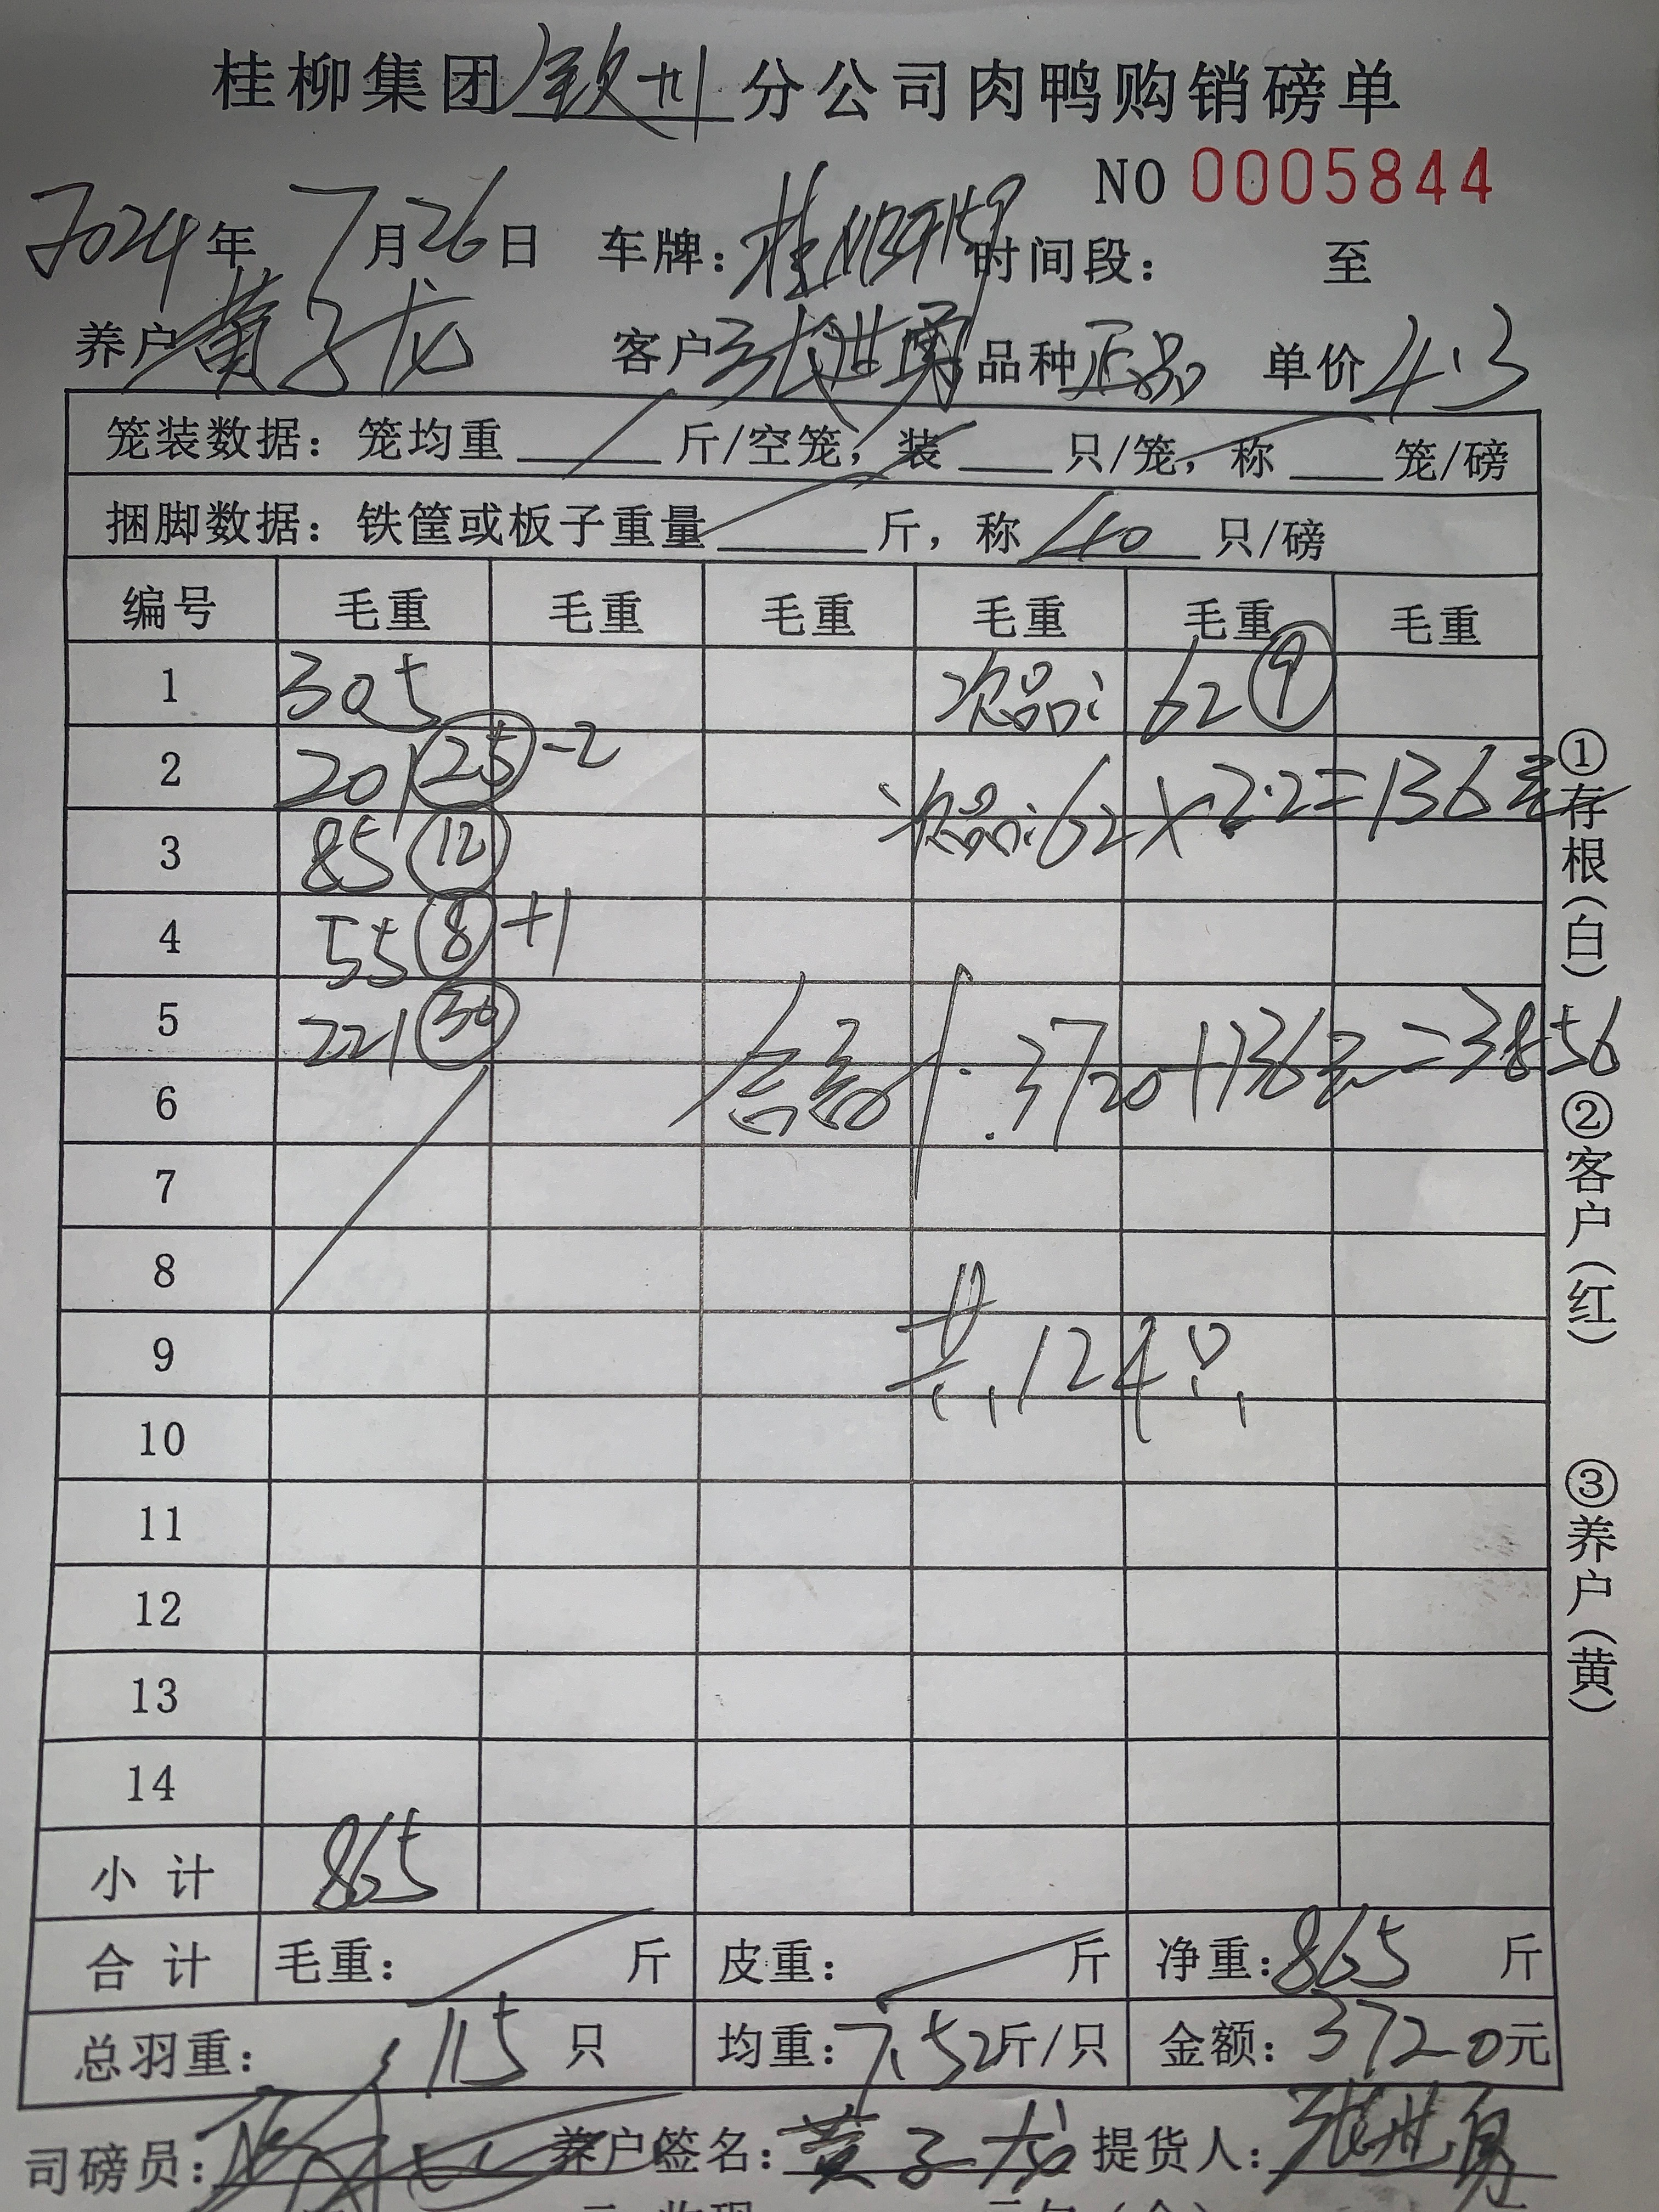 桂柳集团钦州分公司肉鸭购销磅单
NO 0005844
2024年7月26日 车牌：桂 时间段： 至
养户黄子龙 客户张世勇 品种正品 单价4.3
笼装数据：笼均重 斤/空笼，装 只/笼，称 笼/磅
捆脚数据：铁筐或板子重量 斤，称 40 只/磅
编号 毛重 毛重 毛重 毛重 毛重 毛重
1 305 次品: 62 ⑨
2 201 (25) -2 次品:62×2.2=136元
3 85 (12)
4 55 (8) +1
5 221 (30) 合计:3720+136元=3856
6
7
8
9 共124只
10
11
12
13
14
小计 865
合计 毛重： 斤 皮重： 斤 净重：865 斤
总羽重： 115 只 均重：7.52斤/只 金额：3720元
司磅员： 养户签名：黄子龙 提货人：张世勇
①存根（白） ②客户（红） ③养户（黄）